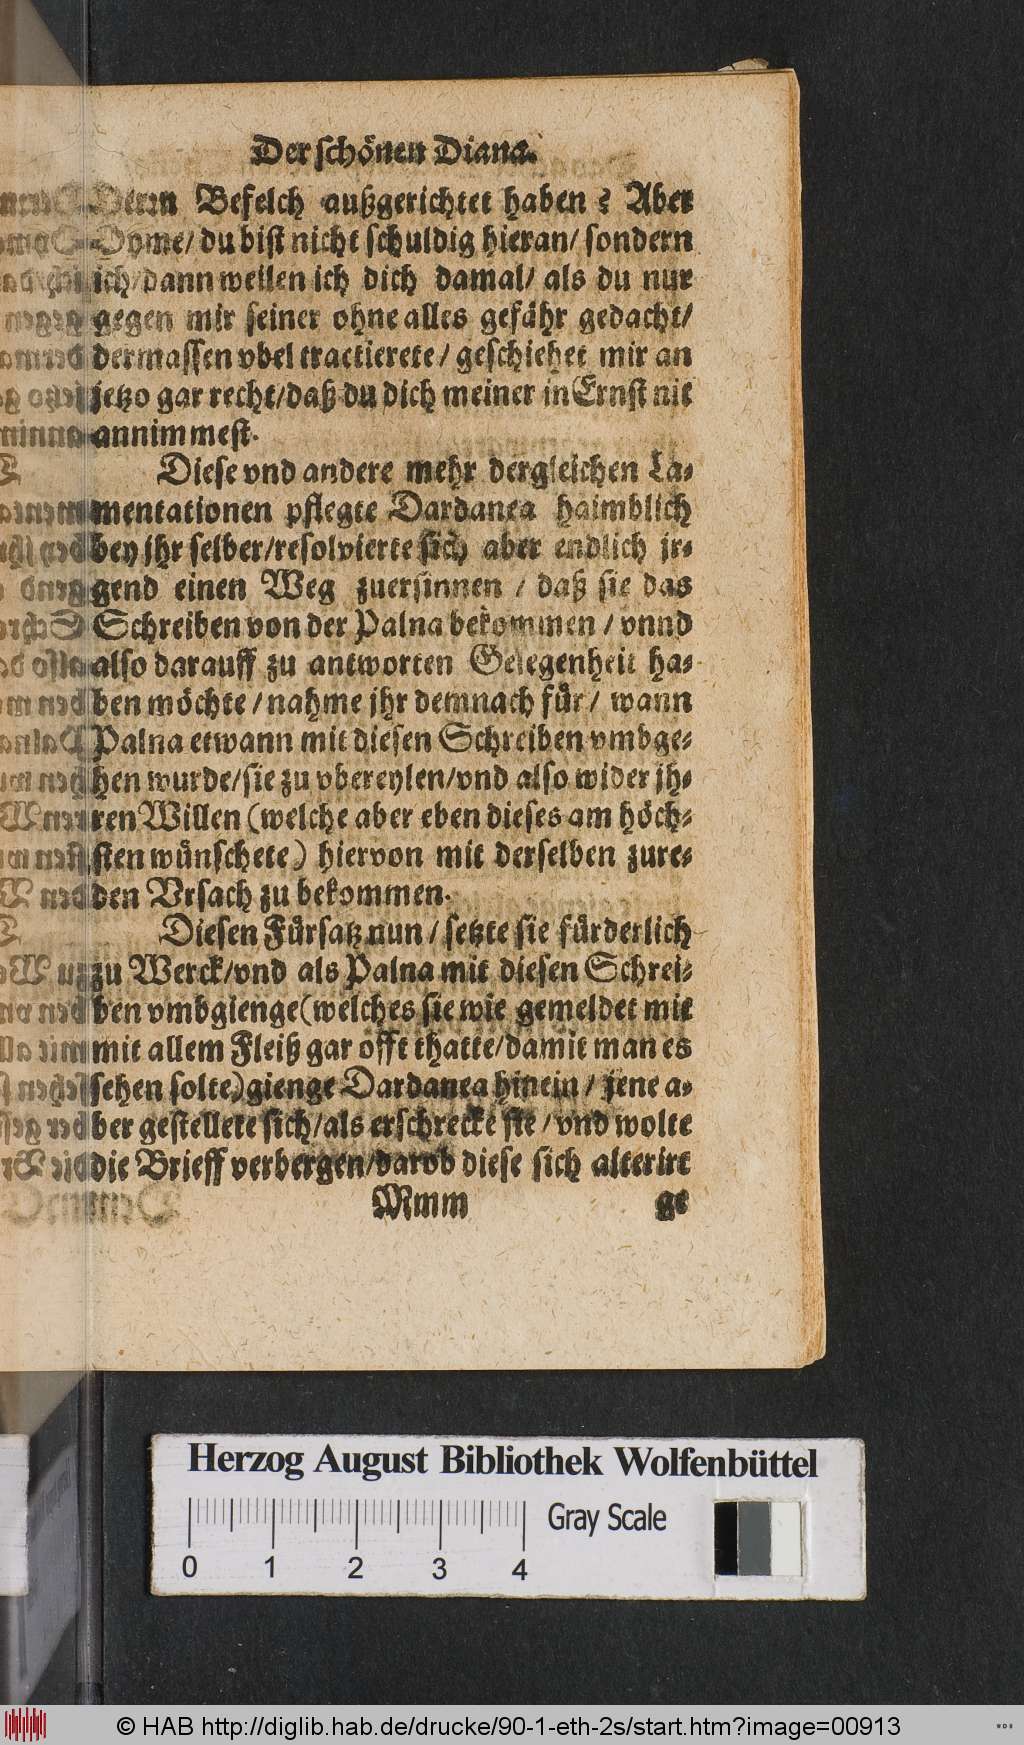 Der schönen Diana.
Herꝛn Befelch außgerichtet haben? Aber
Dyme/ du bist nicht schuldig hieran/ sondern
ich/ dann weilen ich dich damal/ als du nur
gegen mir seiner ohne alles gefähr gedacht/
dermassen vbel tractierete/ geschiehet mir an
jetzo gar recht/ daß du dich meiner in Ernst nit
annimmest.
Diese vnd andere mehr dergleichen La-
mentationen pflegte Dardanea haimblich
bey jhr selber/ resolvierte sich aber endlich jr-
gend einen Weg zuersinnen / daß sie das
Schreiben von der Palna bekommen / vnnd
also darauff zu antworten Gelegenheit ha-
ben möchte / nahme jhr demnach für / wann
Palna etwann mit diesen Schreiben vmbge-
hen wurde/ sie zu vbereylen/ vnd also wider jh-
ren Willen (welche aber eben dieses am höch-
sten wünschete) hiervon mit derselben zure-
den Vrsach zu bekommen.
Diesen Fürsatz nun / setzte sie fürderlich
zu Werck/ vnd als Palna mit diesen Schrei-
ben vmbgienge (welches sie wie gemeldet mit
mit allem Fleiß gar offt thatte/ damit man es
sehen solte) gienge Dardanea hinein / jene a-
ber gestellete sich/ als erschrecke sie / vnd wolte
die Brieff verbergen/ darob diese sich alterirt
Mmm ge
Herzog August Bibliothek Wolfenbüttel
Gray Scale
0 1 2 3 4
© HAB http://diglib.hab.de/drucke/90-1-eth-2s/start.htm?image=00913